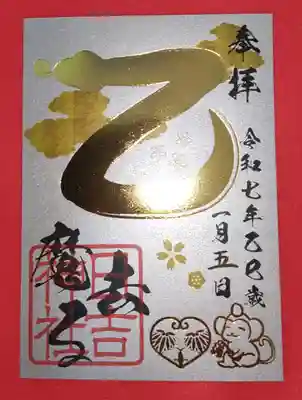 奉拝
令和七年乙巳歳
一月五日
乙
魔去る
日吉神社